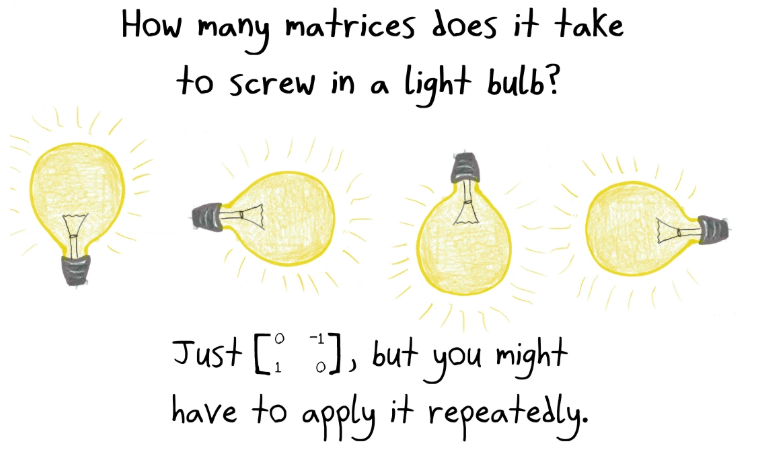 How many matrices does it take
to screw in a light bulb?
Just [0 -1
1 0], but you might
have to apply it repeatedly.